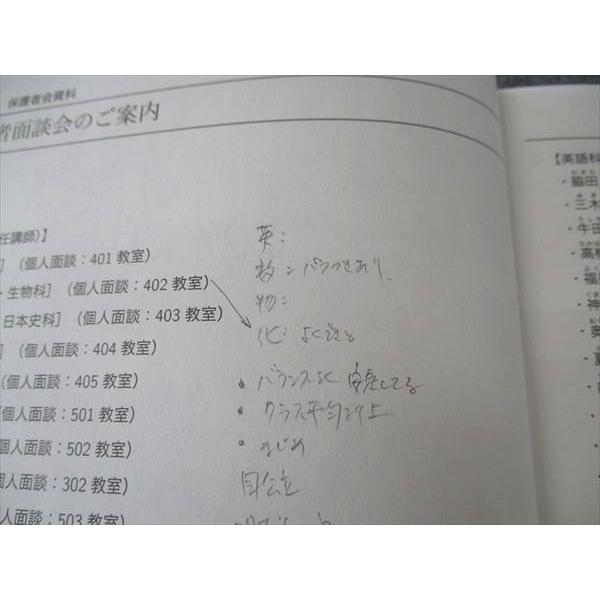 保護者会資料
者面談会のご案内
任講師)】
］（個人面談：401 教室）
・生物科］（個人面談：402 教室）
日本史科］（個人面談：403 教室）
］（個人面談：404 教室）
（個人面談：405 教室）
（個人面談：501 教室）
個人面談：502 教室）
個人面談：302 教室）
人面談：503 教室）
英：
数：バラつきあり
物：
化：
・バランスよく 安定してる
・クラス平均より上
・まじめ
【英語科
・脇田
・三木
・牛田
・高橋
・福
・神